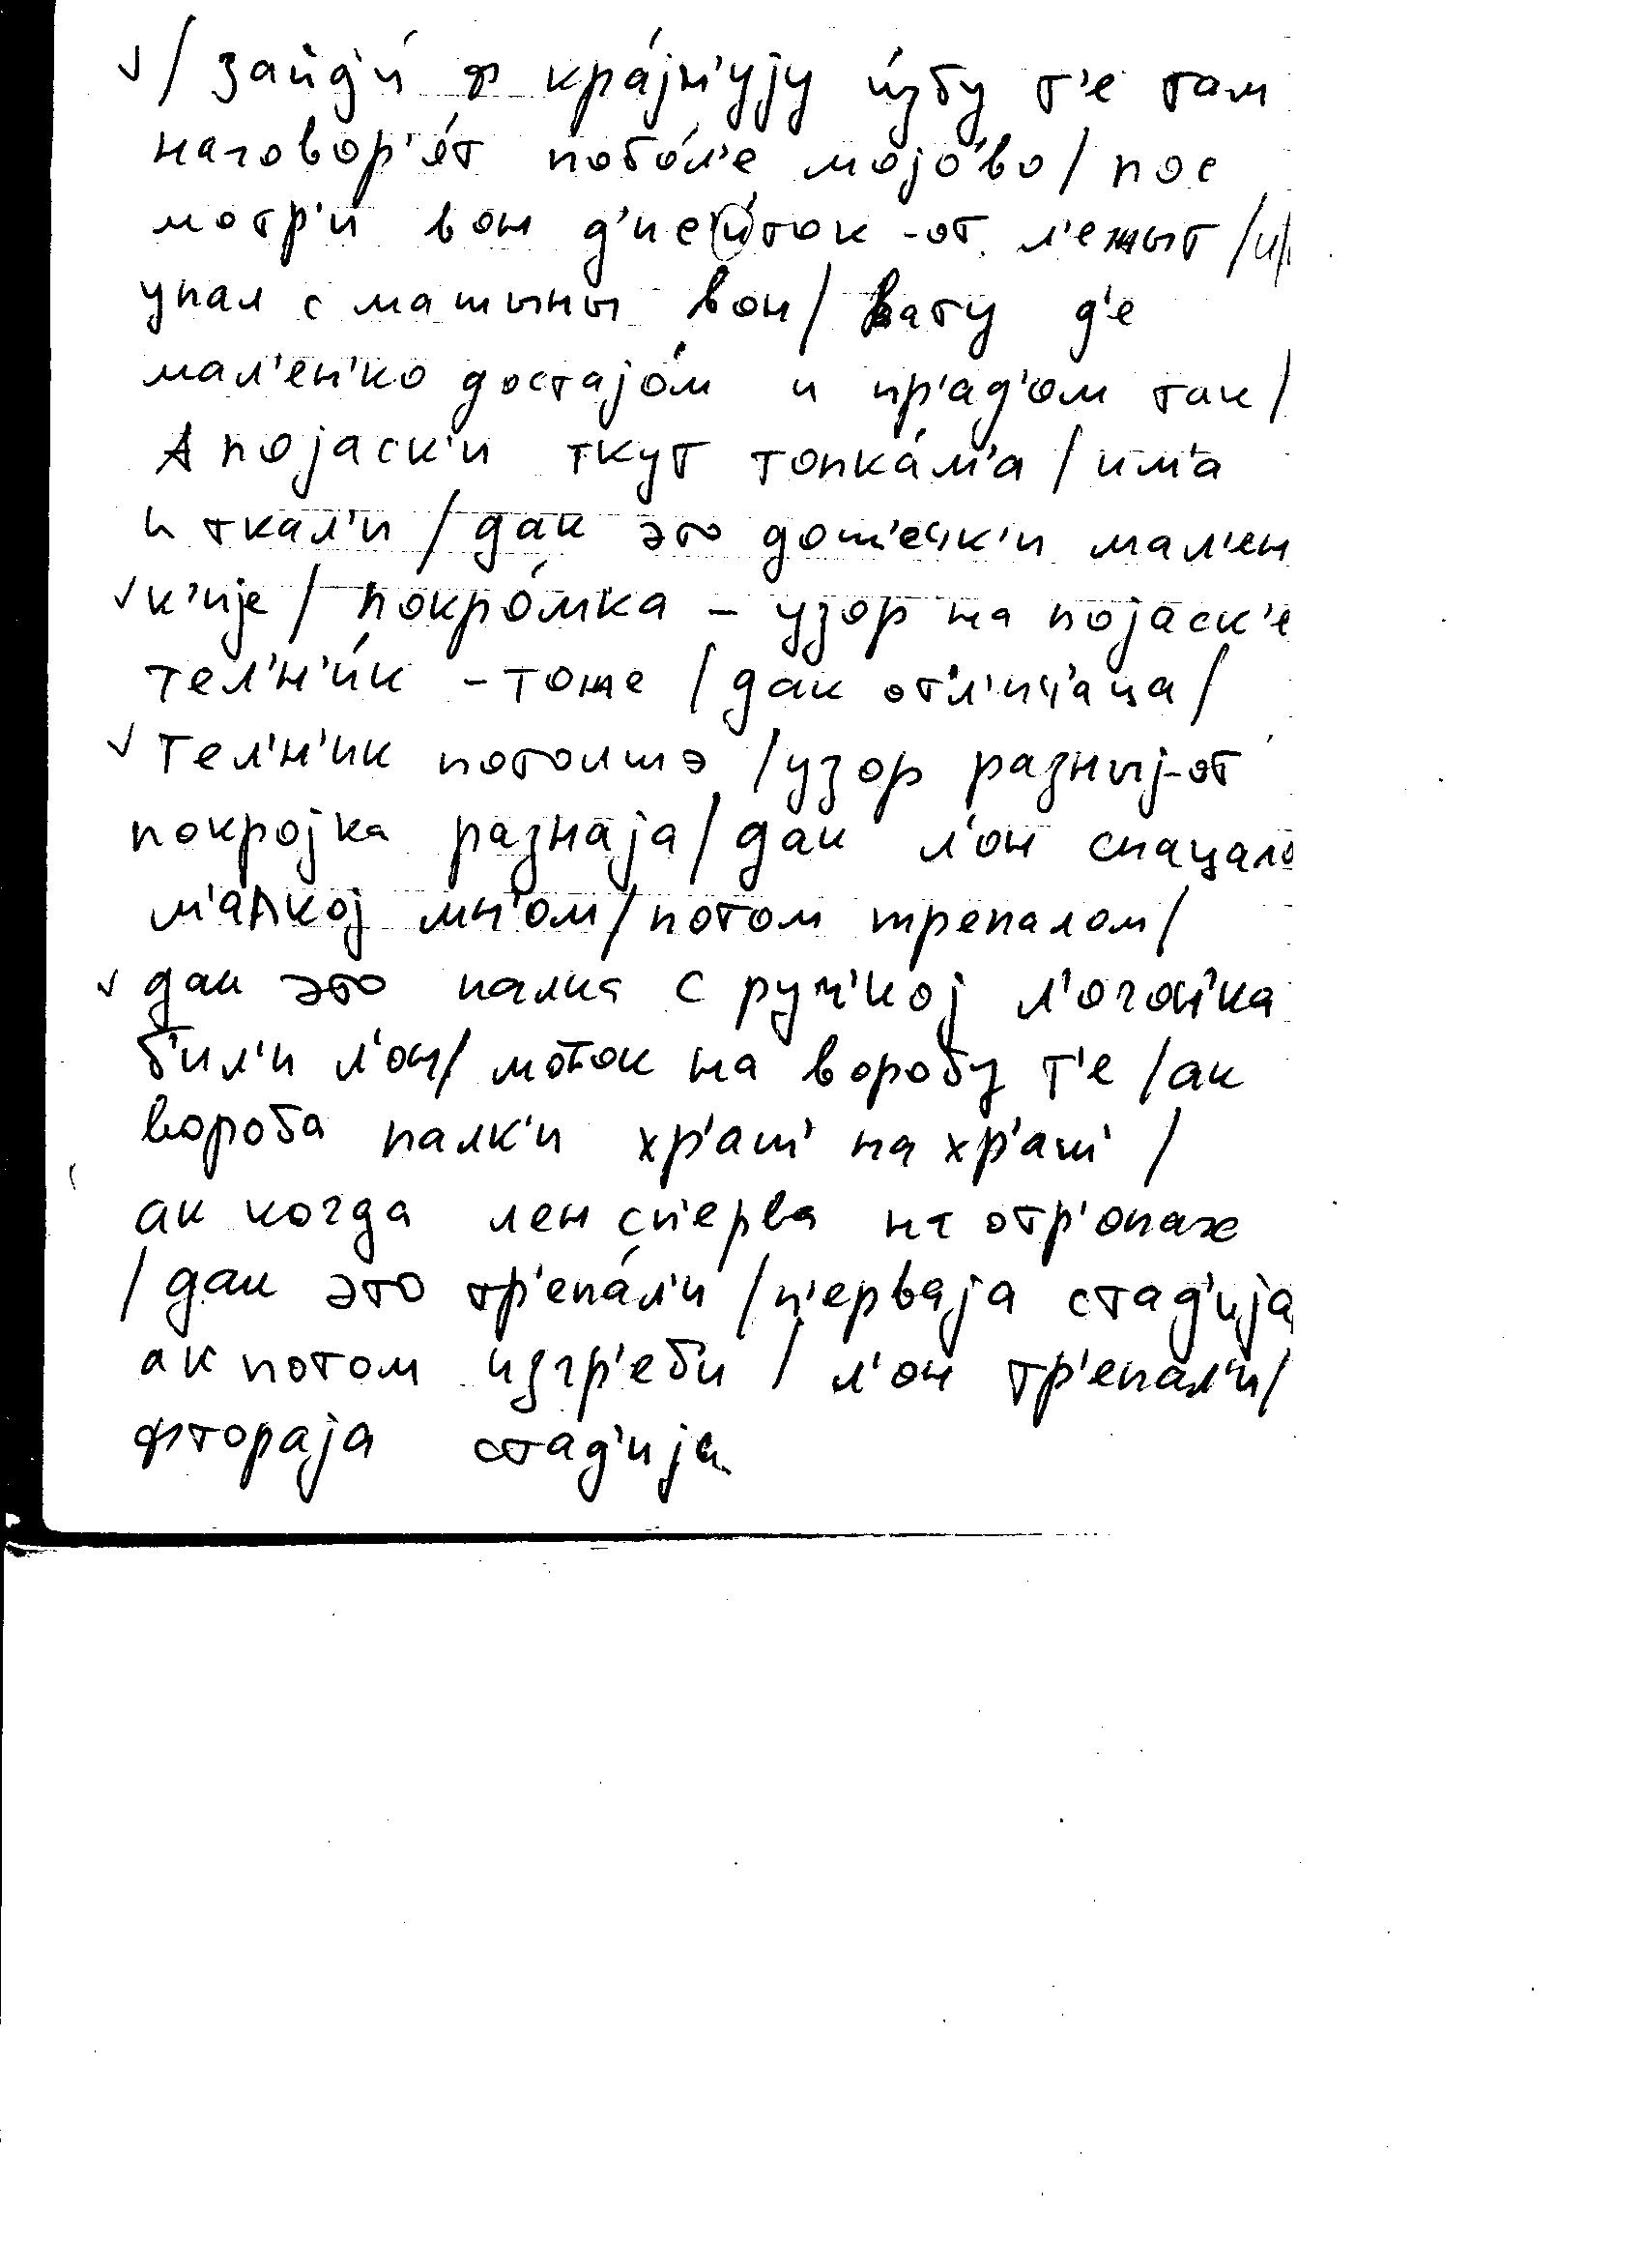 √/ зайд'и́ ф кра́јн'ују и́збу т'е там
наговор'я́т побо́л'е мојо́во / пос
мотр'и вон д'ие(и́)ток -от л'ежыт /и/
упал с машыны вон / вату д'е
мал'ен'ко достајо́м и пр'ад'ом так /
А појаск'и ткут топка́м'а / им'а
и ткал'и / дак это дош'ечк'и мал'ен
√ к'ије / покро́мка – узор на појаск'е
тел'н'и́к – тоже / дак отл'ич'аца /
√ Тел'н'ик потолшэ / узор разныј-от
покројка разнаја / дак л'он спацало
м'алкој мн'ом / потом трепалом /
√ дак это палка с руч'кој л'огон'ка
б'ил'и л'он / моток на воробу т'е / ак
вороба палк'и хр'аш' на хр'аш' /
ак когда лен сп'ерва на отр'опах
/ дак это тр'епа́л'и / п'ерваја стад'ија
ак потом изгр'еб'и / л'он тр'епал'и /
фтораја стад'ија